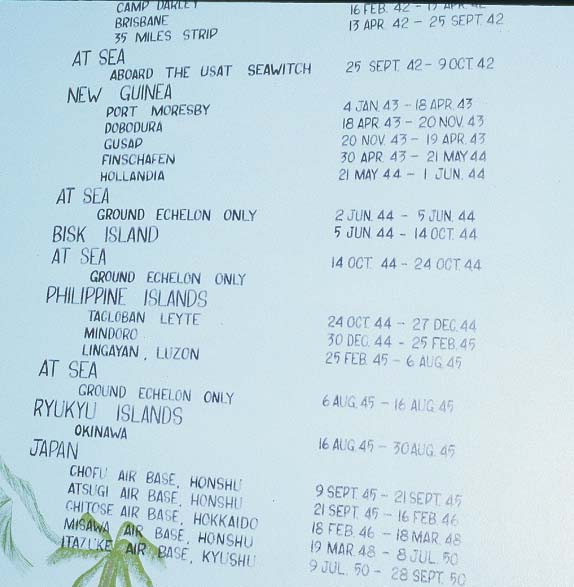 CAMP DARLEY 16 FEB. 42 - 13 APR. 42
BRISBANE 13 APR. 42 - 25 SEPT. 42
35 MILES STRIP
AT SEA
ABOARD THE USAT SEAWITCH 25 SEPT. 42 - 9 OCT. 42
NEW GUINEA
PORT MORESBY 4 JAN. 43 - 18 APR. 43
DOBODURA 18 APR. 43 - 20 NOV. 43
GUSAP 20 NOV. 43 - 19 APR. 43
FINSCHAFEN 30 APR. 43 - 21 MAY 44
HOLLANDIA 21 MAY 44 - 1 JUN. 44
AT SEA
GROUND ECHELON ONLY 2 JUN. 44 - 5 JUN. 44
BISK ISLAND 5 JUN. 44 - 14 OCT. 44
AT SEA
GROUND ECHELON ONLY 14 OCT. 44 - 24 OCT. 44
PHILIPPINE ISLANDS
TACLOBAN LEYTE 24 OCT. 44 - 27 DEC. 44
MINDORO 30 DEC. 44 - 25 FEB. 45
LINGAYAN, LUZON 25 FEB. 45 - 6 AUG. 45
AT SEA
GROUND ECHELON ONLY 6 AUG. 45 - 16 AUG. 45
RYUKYU ISLANDS
OKINAWA 16 AUG. 45 - 30 AUG. 45
JAPAN
CHOFU AIR BASE, HONSHU 9 SEPT. 45 - 21 SEPT. 45
ATSUGI AIR BASE, HONSHU 21 SEPT. 45 - 16 FEB. 46
CHITOSE AIR BASE, HOKKAIDO 18 FEB. 46 - 18 MAR. 48
MISAWA AIR BASE, HONSHU 19 MAR. 48 - 8 JUL. 50
ITAZUKE AIR BASE, KYUSHU 9 JUL. 50 - 28 SEPT. 50